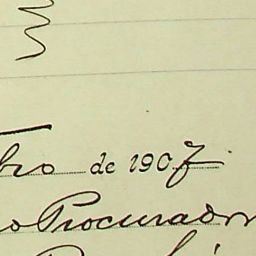 bro de 1907.
o Procurador